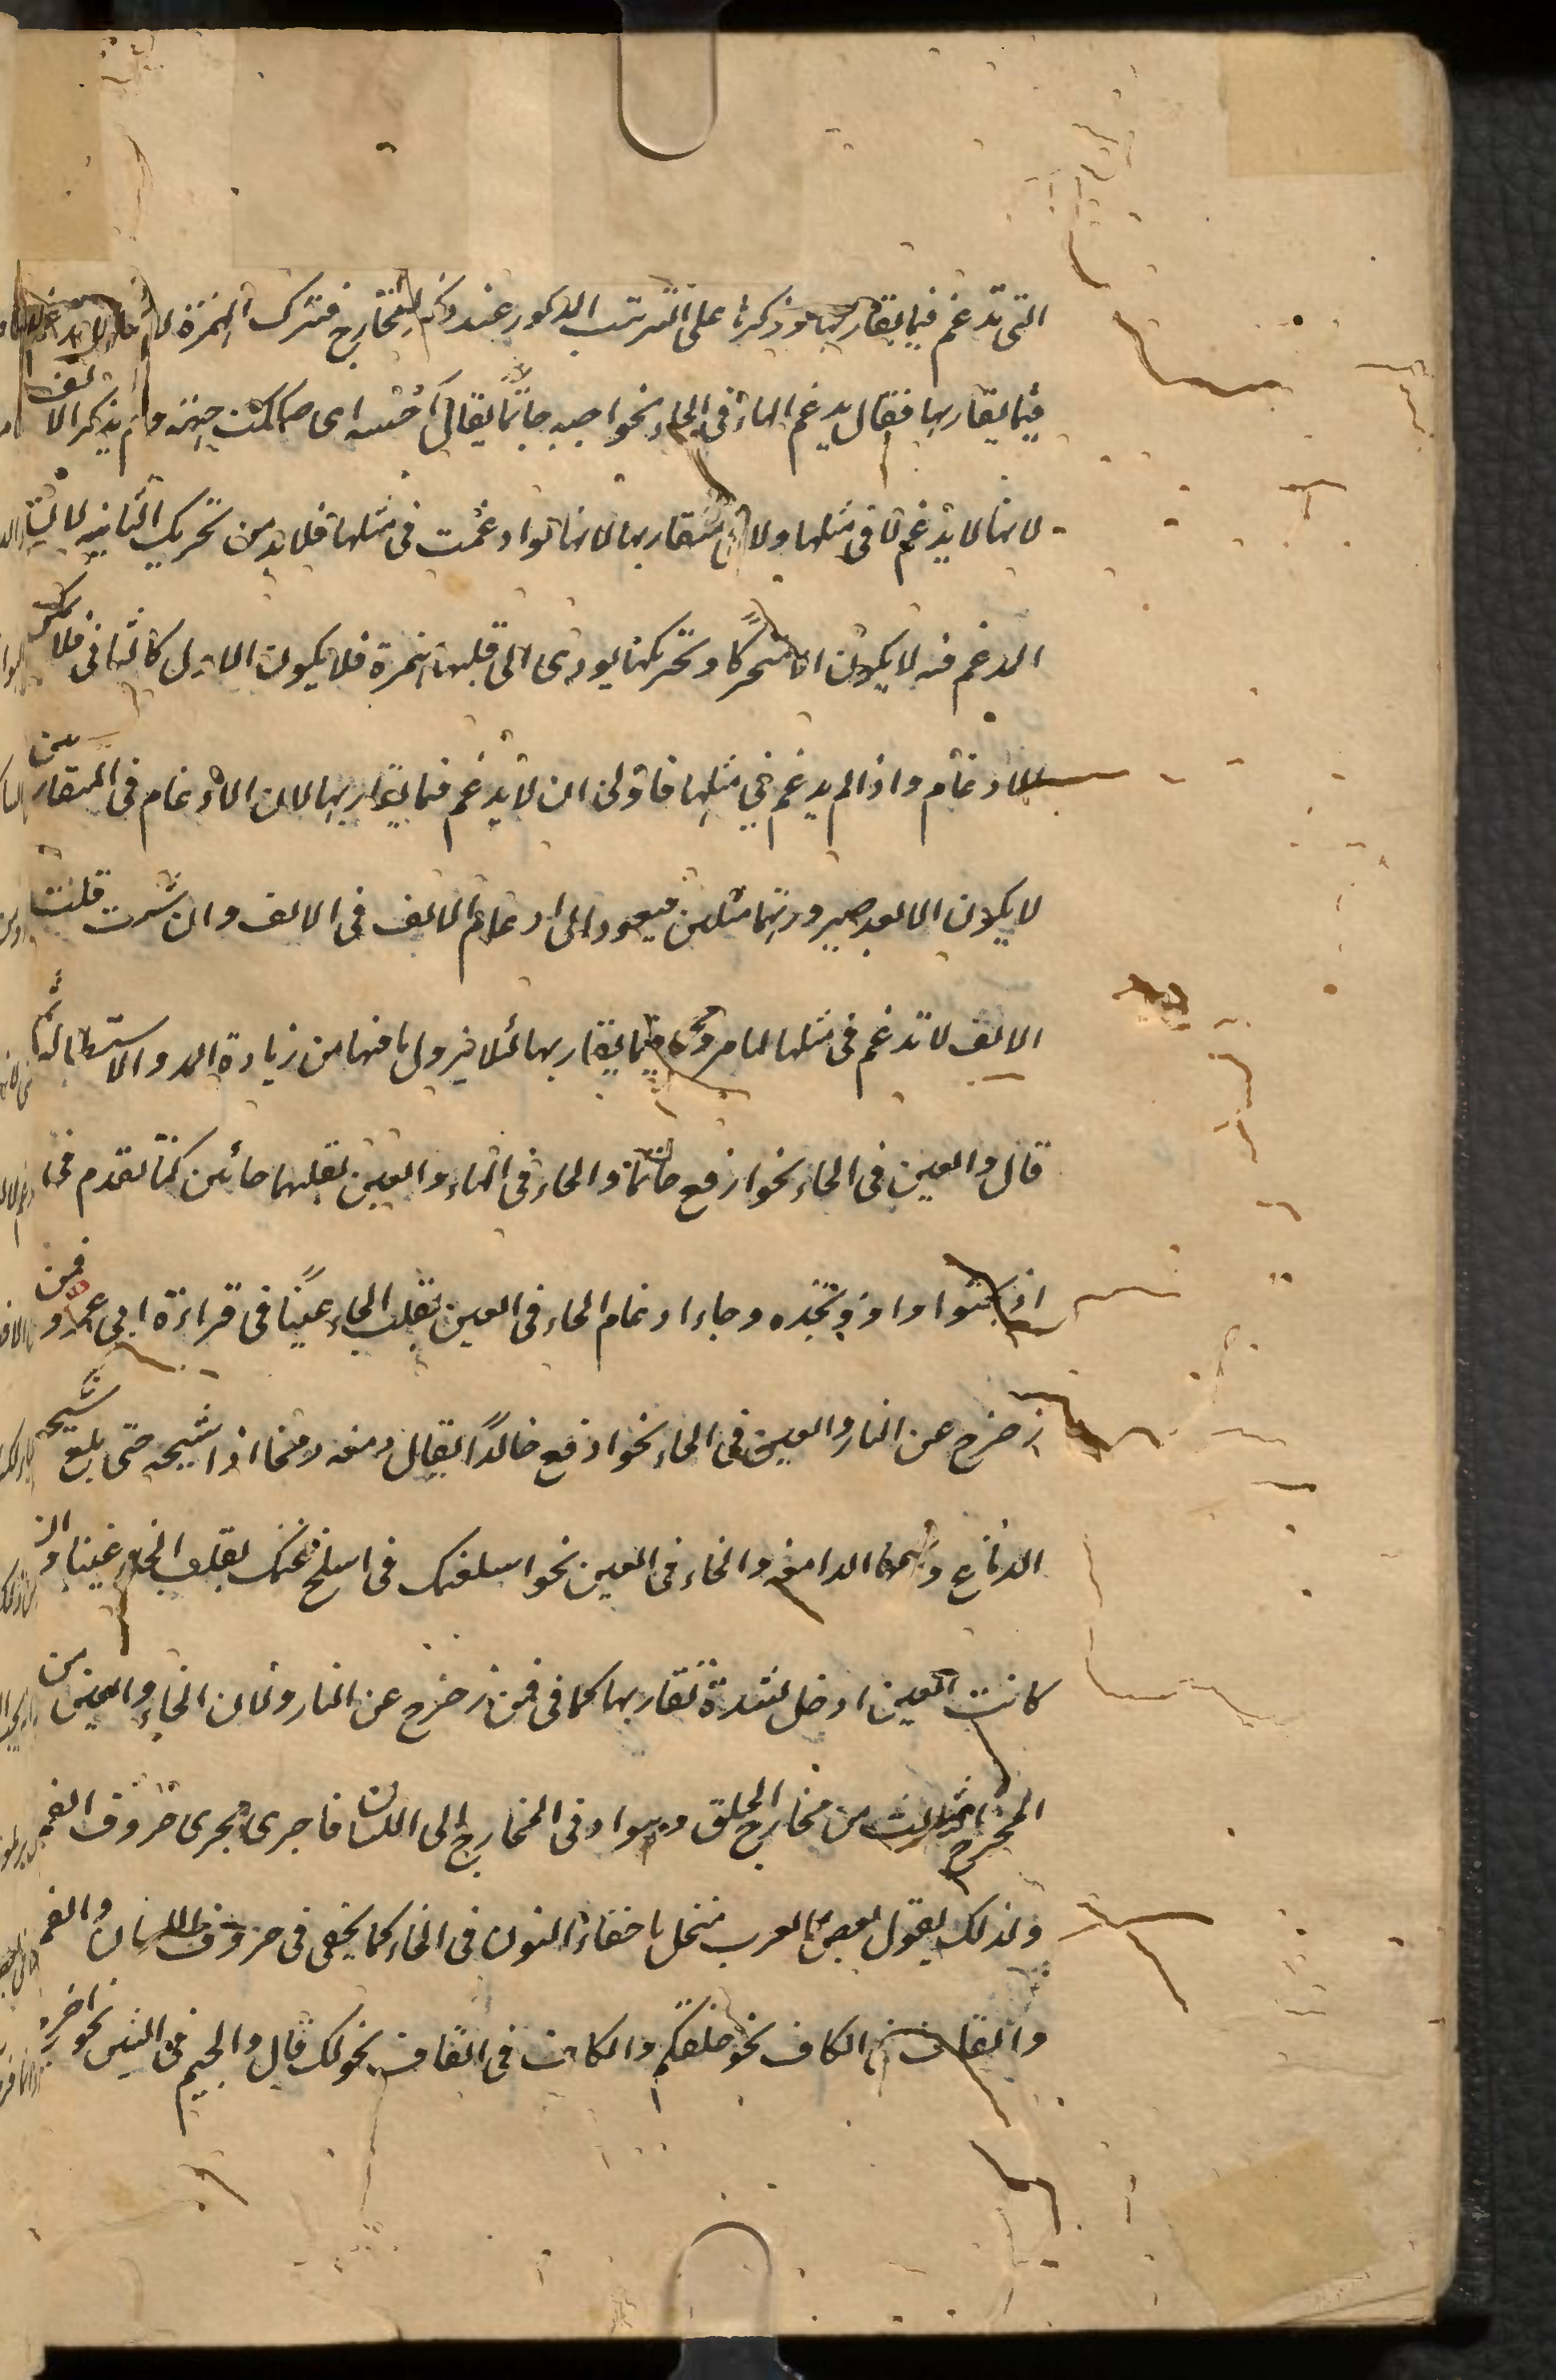 التى تدغم فيما يقاربها وذكرها على الترتيب المذكور عند ذكر المخارج فترك الهمزة لانها لا تدغم
فيما يقاربها فقال يدغم الهاء فى الحاء نحو اجبه حاتما يقال اى صككت جبهته ولم يذكر الالف
لانها لا يدغم لا فى مثلها ولا فى متقاربها لانها لو ادغمت فى مثلها فلا بد من تحريك الثانية لما
المدغم فيه لا يكون الا متحركا وتحريكها يودى الى قلبها همزة فلا يكون الاول كالثانى فلا يمكن
الادغام واذا لم يدغم فى مثلها فاولى ان لا يدغم فيما يقاربها لان الادغام فى المتقاربين
لا يكون الا بعد صيرورتهما مثلين فيعود الى ادغام الالف فى الالف وان شئت قلت
الالف لا تدغم فى مثلها لما مر فيما يقاربها لئلا يزول ما فيها من زيادة المد والاستطالة
قال والعين فى الحاء نحو ارفع حاتما والحاء فى الهاء والعين بقلبهما حائين كما تقدم فى
اذبحتودا واذبحذه وجاء ادغام الحاء فى العين بقلب الحاء عينا فى قراءة ابى عمرو فمن
زحزح عن النار والعين فى الخاء نحو ادفع خالدا يقال دمغه دمغا اذا شجه حتى بلغ الشجة
الدماغ واسمها الدامغة والخاء فى الغين نحو اسلغنمك فى اسلخ غنمك بقلب الخاء غينا وان
كانت العين ادخل لشدة تقاربها كما فى فمن زحزح عن النار ولان الخاء والغين من
المخرج الثالث من مخارج الحلق وهو ادنى المخارج الى اللسان فاجرى مجرى حروف الفم
ولذلك يقول بعض العرب منخل باخفاء النون فى الخاء كما يخفى فى حروف اللسان والفم
والقاف فى الكاف نحو خلقكم والكاف فى القاف نحو لك قال والجيم فى الشين نحو اخرج